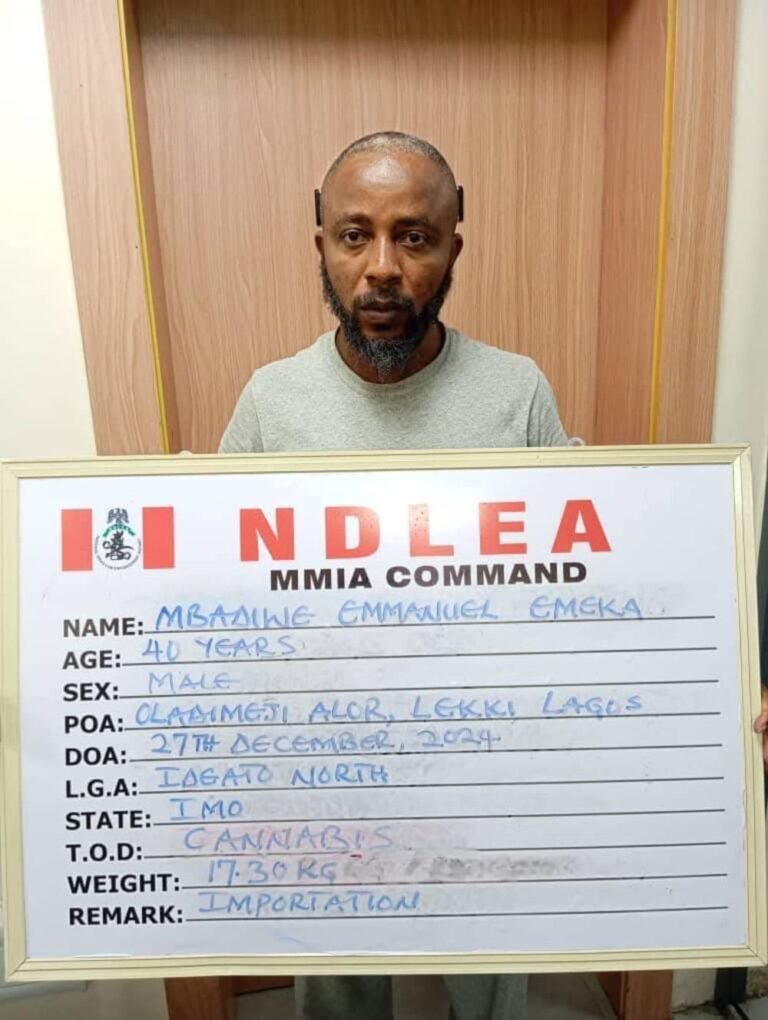 NDLEA
MMIA COMMAND
NAME: MBADIWE EMMANUEL EMEKA
AGE: 40 YEARS
SEX: MALE
POA: OLADIMEJI ALOR, LEKKI, LAGOS
DOA: 27TH DECEMBER, 2024
L.G.A: IDEATO NORTH
STATE: IMO
T.O.D: CANNABIS
WEIGHT: 17.30KG
REMARK: IMPORTATION